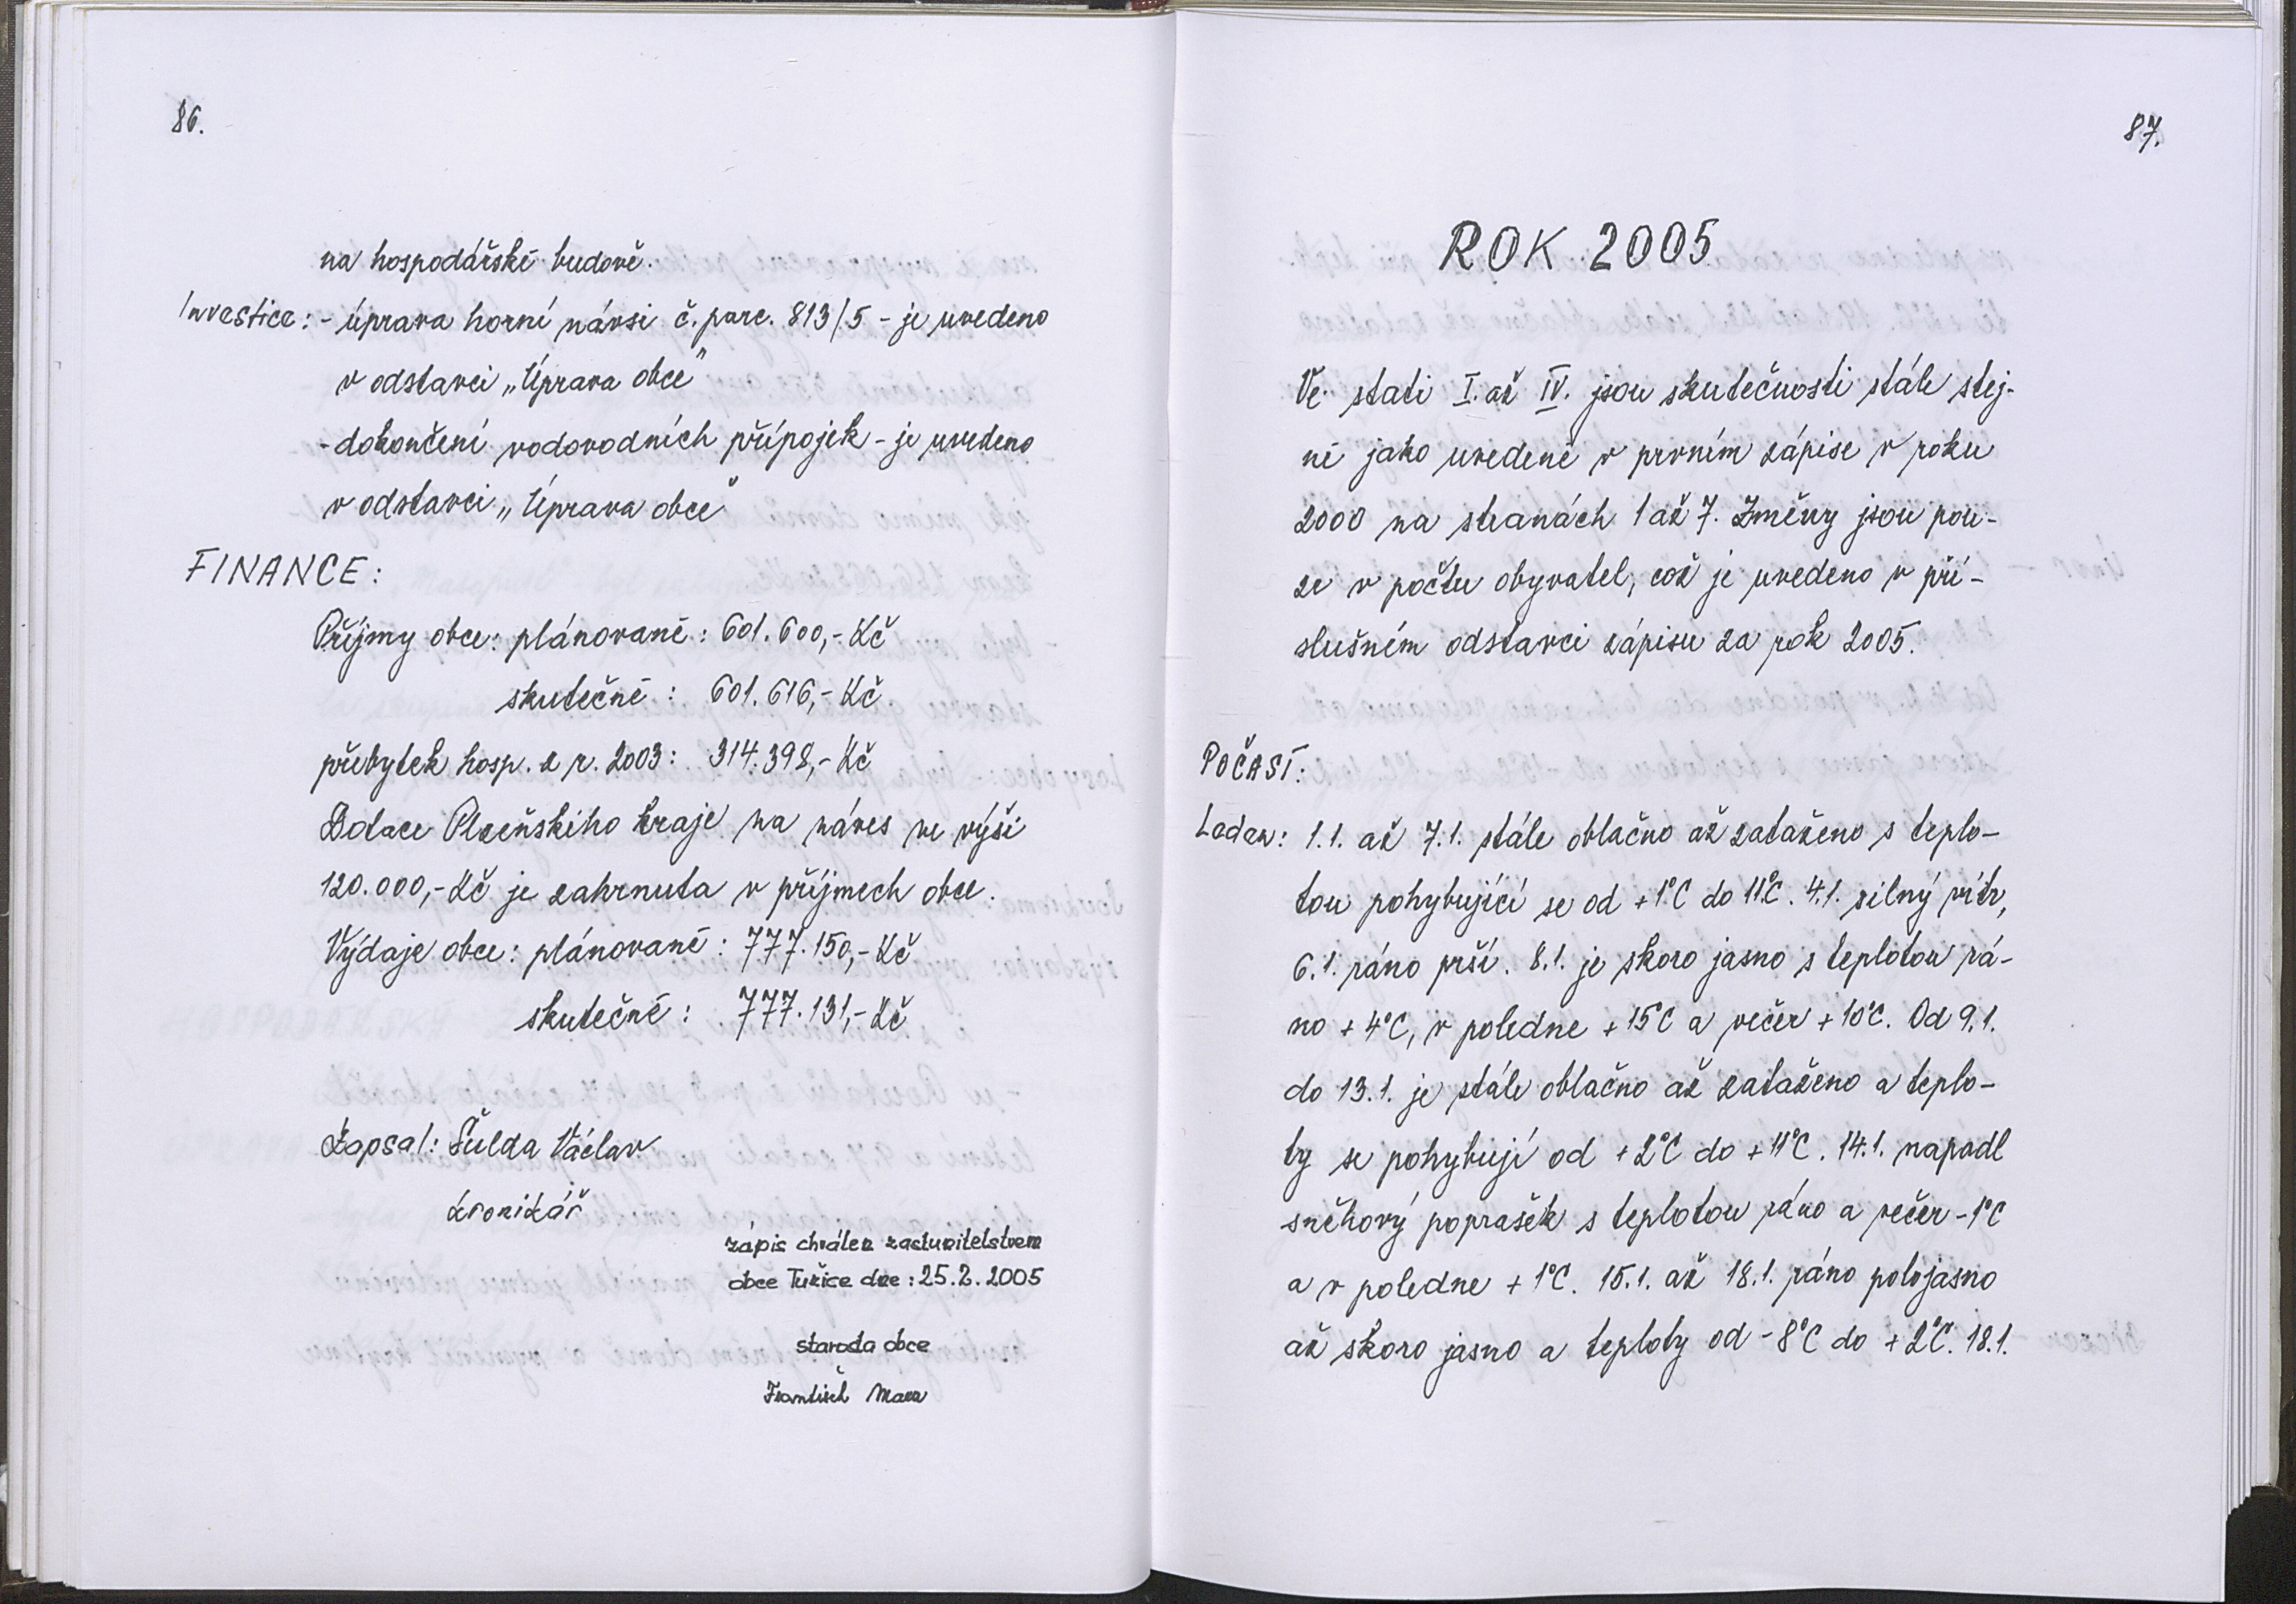 86.
na hospodářské budově.
Investice: - úprava horní návsi č. parc. 813/5 - je uvedeno
v odstavci „Úprava obce"
- dokončení vodovodních přípojek - je uvedeno
v odstavci „Úprava obce"
FINANCE:
Příjmy obce: plánované: 601.600,- Kč
skutečné: 601.616,- Kč
přebytek hosp. z r. 2003: 314.398,- Kč
Dotace Plzeňského kraje na náves ve výši
120.000,- Kč je zahrnuta v příjmech obce.
Výdaje obce: plánované: 777.150,- Kč
skutečné: 777.131,- Kč
Zapsal: Šulda Václav
kronikář
zápis chválen zastupitelstvem
obce Tužice dne: 25.2.2005
starosta obce
František
87.
ROK 2005
Ve stati I. až IV. jsou skutečnosti stále stej-
né jako uvedené v prvním zápise v roku
2000 na stranách 1 až 7. Změny jsou pou-
ze v počtu obyvatel, což je uvedeno v pří-
slušném odstavci zápisu za rok 2005.
POČASÍ:
Leden: 1.1. až 7.1. stále oblačno až zataženo s teplo-
tou pohybující se od +1°C do 11°C. 4.1. silný vítr,
6.1. ráno prší. 8.1. je skoro jasno s teplotou rá-
no +4°C, v poledne +15°C a večer +10°C. Od 9.1.
do 13.1. je stále oblačno až zataženo a teplo-
ty se pohybují od +2°C do +11°C. 14.1. napadl
sněhový poprašek s teplotou ráno a večer -1°C
a v poledne +1°C. 15.1. až 18.1. ráno polojasno
až skoro jasno a teploty od -8°C do +2°C. 18.1.